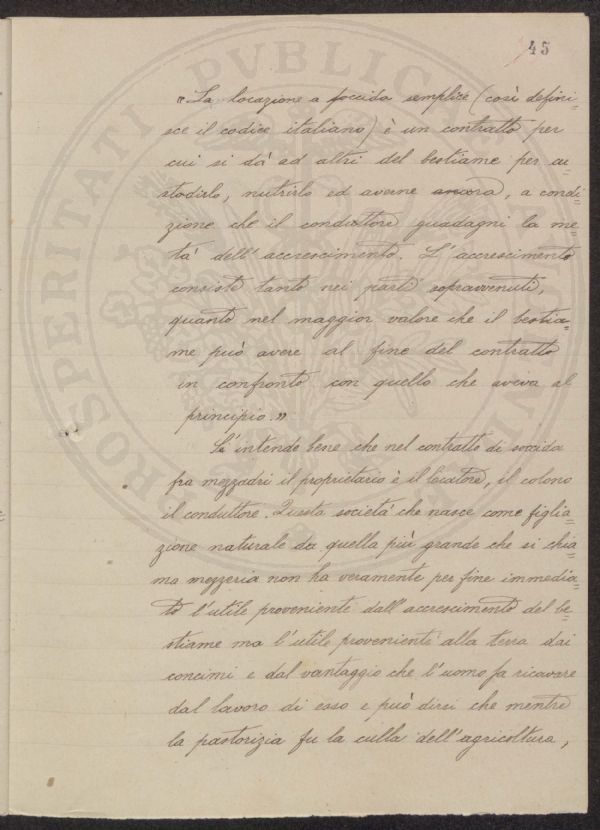 45
"La locazione a soccida semplice (così defini=
sce il codice italiano) è un contratto per
cui si dà ad altri del bestiame per cu=
stodirlo, nutrirlo ed averne ancora, a condi=
zione che il conduttore guadagni la me=
tà dell'accrescimento. L'accrescimento
consiste tanto nei parti sopravvenuti,
quanto nel maggior valore che il bestia=
me può avere al fine del contratto
in confronto con quello che aveva al
principio."
S'intende bene che nel contratto di soccida
fra mezzadri il proprietario è il locatore, il colono
il conduttore. Questa società che nasce come figlia=
zione naturale da quella più grande che si chia=
ma mezzeria non ha veramente per fine immedia=
to l'utile proveniente dall'accrescimento del be=
stiame ma l'utile proveniente alla terra dai
concimi e dal vantaggio che l'uomo fa ricavare
dal lavoro di esso e può dirsi che mentre
la pastorizia fu la culla dell'agricoltura,
PROSPERITATI PVBLICAE